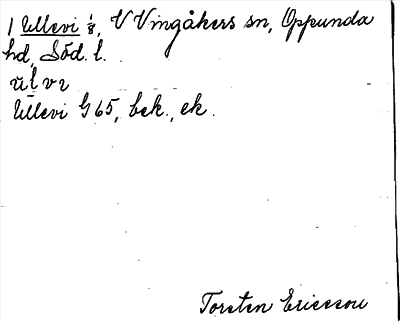 1 Ullevi 1/8, V Vingåkers sn, Oppunda
hd, Söd. l.
Ullevi G 65, bek., ek.
Torsten Ericsson